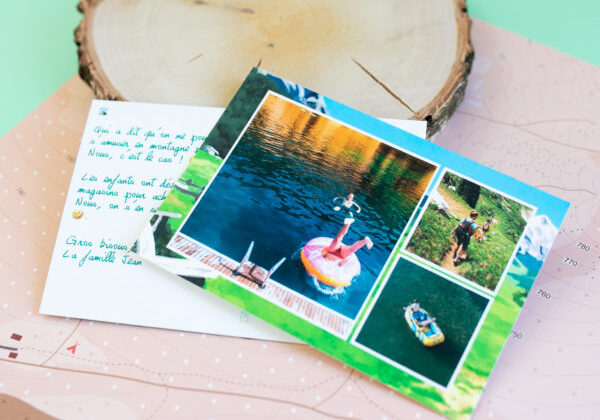 Qui a dit qu'on ne pou
s'amuser en montagne
Nous, c'est le cas !
Les enfants ont dév
magasins pour ach
Nous, on s'en s
Gros bisous,
La famille Jean
780
770
760
750